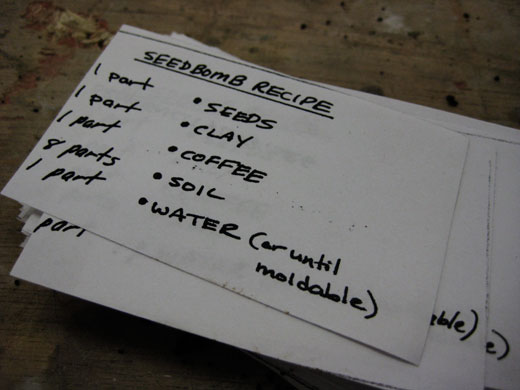 SEEDBOMB RECIPE
1 part • SEEDS
1 part • CLAY
1 part • COFFEE
8 parts • SOIL
1 part • WATER (or until
moldable)
part
able)
e)